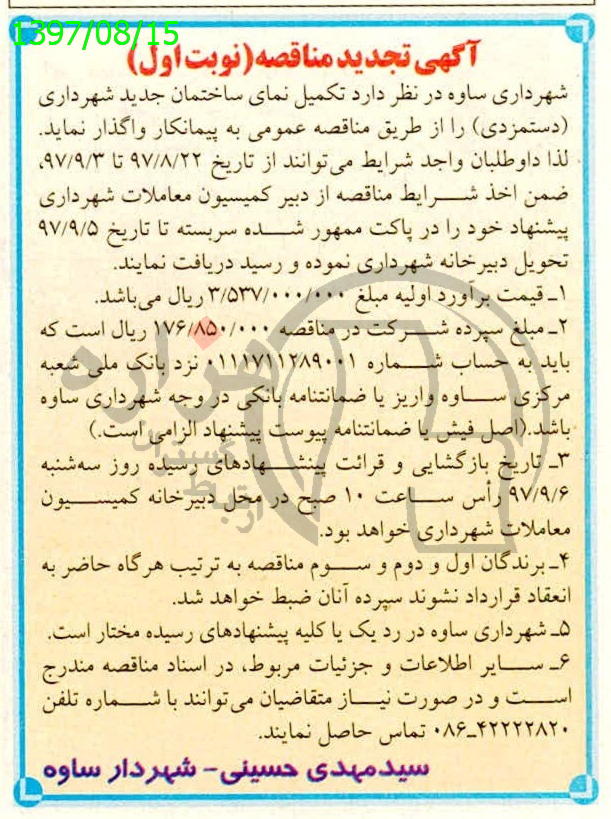 1397/08/15
آگهی تجدید مناقصه (نوبت اول)
شهرداری ساوه در نظر دارد تکمیل نمای ساختمان جدید شهرداری
(دستمزدی) را از طریق مناقصه عمومی به پیمانکار واگذار نماید.
لذا داوطلبان واجد شرایط می‌توانند از تاریخ ۹۷/۸/۲۲ تا ۹۷/۹/۳،
ضمن اخذ شرایط مناقصه از دبیر کمیسیون معاملات شهرداری
پیشنهاد خود را در پاکت ممهور شده سربسته تا تاریخ ۹۷/۹/۵
تحویل دبیرخانه شهرداری نموده و رسید دریافت نمایند.
۱ـ قیمت برآورد اولیه مبلغ ۳/۵۳۷/۰۰۰/۰۰۰ ریال می‌باشد.
۲ـ مبلغ سپرده شرکت در مناقصه ۱۷۶/۸۵۰/۰۰۰ ریال است که
باید به حساب شماره ۰۱۱۱۷۱۱۲۸۹۰۰۱ نزد بانک ملی شعبه
مرکزی ساوه واریز یا ضمانتنامه بانکی در وجه شهرداری ساوه
باشد.(اصل فیش یا ضمانتنامه پیوست پیشنهاد الزامی است.)
۳ـ تاریخ بازگشایی و قرائت پینشهادهای رسیده روز سه‌شنبه
۹۷/۹/۶ رأس ساعت ۱۰ صبح در محل دبیرخانه کمیسیون
معاملات شهرداری خواهد بود.
۴ـ برندگان اول و دوم و سوم مناقصه به ترتیب هرگاه حاضر به
انعقاد قرارداد نشوند سپرده آنان ضبط خواهد شد.
۵ـ شهرداری ساوه در رد یک یا کلیه پیشنهادهای رسیده مختار است.
۶ـ سایر اطلاعات و جزئیات مربوط، در اسناد مناقصه مندرج
است و در صورت نیاز متقاضیان می‌توانند با شماره تلفن
۰۸۶ـ۴۲۲۲۲۸۲۰ تماس حاصل نمایند.
سیدمهدی حسینی - شهردار ساوه